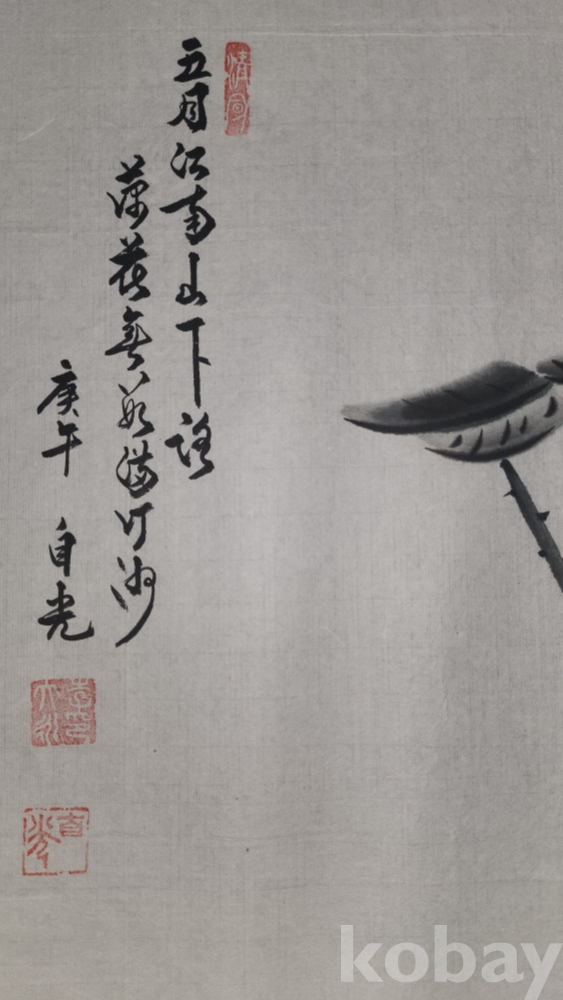 五月江南山下路
藕花無數滿汀洲
庚午 自光
自光
kobay